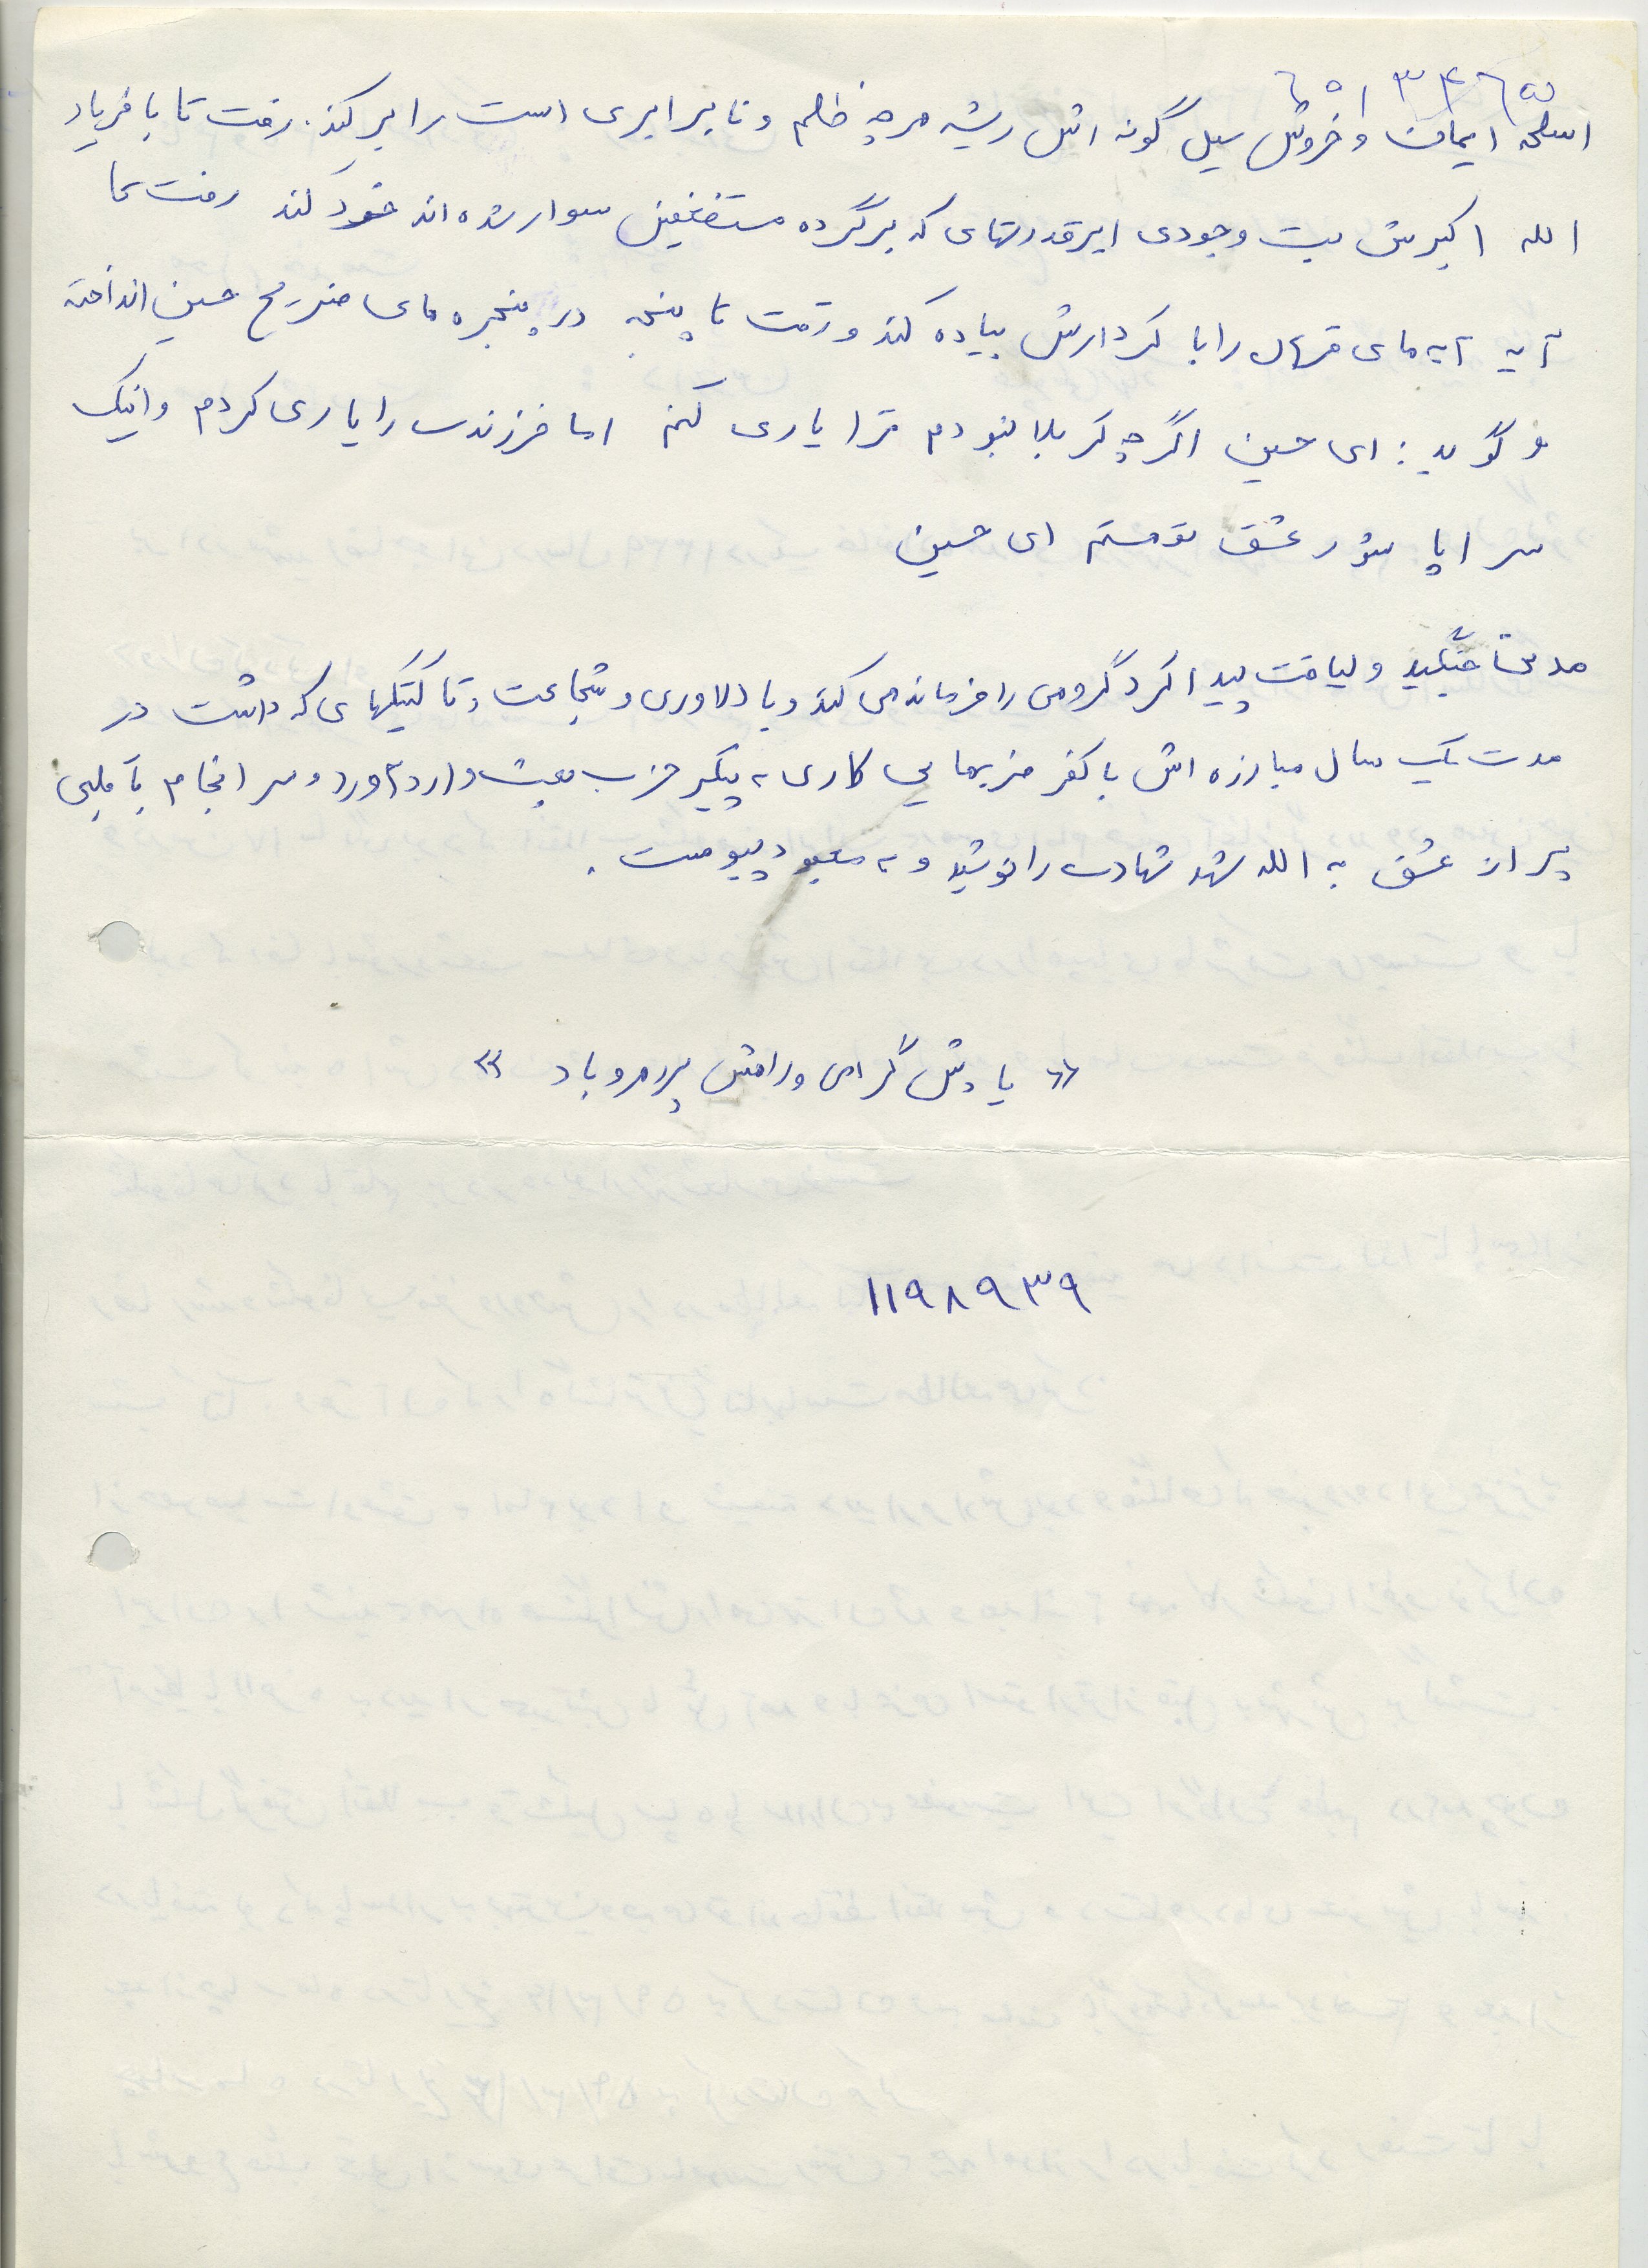 ۶۵۱۳۴۶۵
اسلحه ایمان و خروش سیل گونه اش ریشه هرچه ظلم و نابرابری است را برکند. رفت تا با فریاد
الله اکبرش بت وجودی ابرقدرتهای که برگرده مستضعفین سوار شده اند خورد کند رفت تا
آیه آیه های قرآن را با کردارش پیاده کند و رفت تا پنجه در پنجره های ضریح حسین انداخته
و گوید: ای حسین اگرچه کربلا نبودم ترا یاری کنم اما فرزندت را یاری کردم و اینک
سراپا شور عشق تو هستم ای حسین
مدتها جنگید و لیاقت پیدا کرد گروهی را فرماندهی کند و با دلاوری و شجاعت و تاکتیکهای که داشت در
مدت یک سال مبارزه اش با کفر ضربهایی کاری به پیکر حزب بعث وارد آورد و سرانجام با قلبی
پر از عشق به الله شهد شهادت را نوشید و به معبود پیوست.
« یادش گرامی و راهش پررهرو باد »
۱۱۹۸۹۳۹